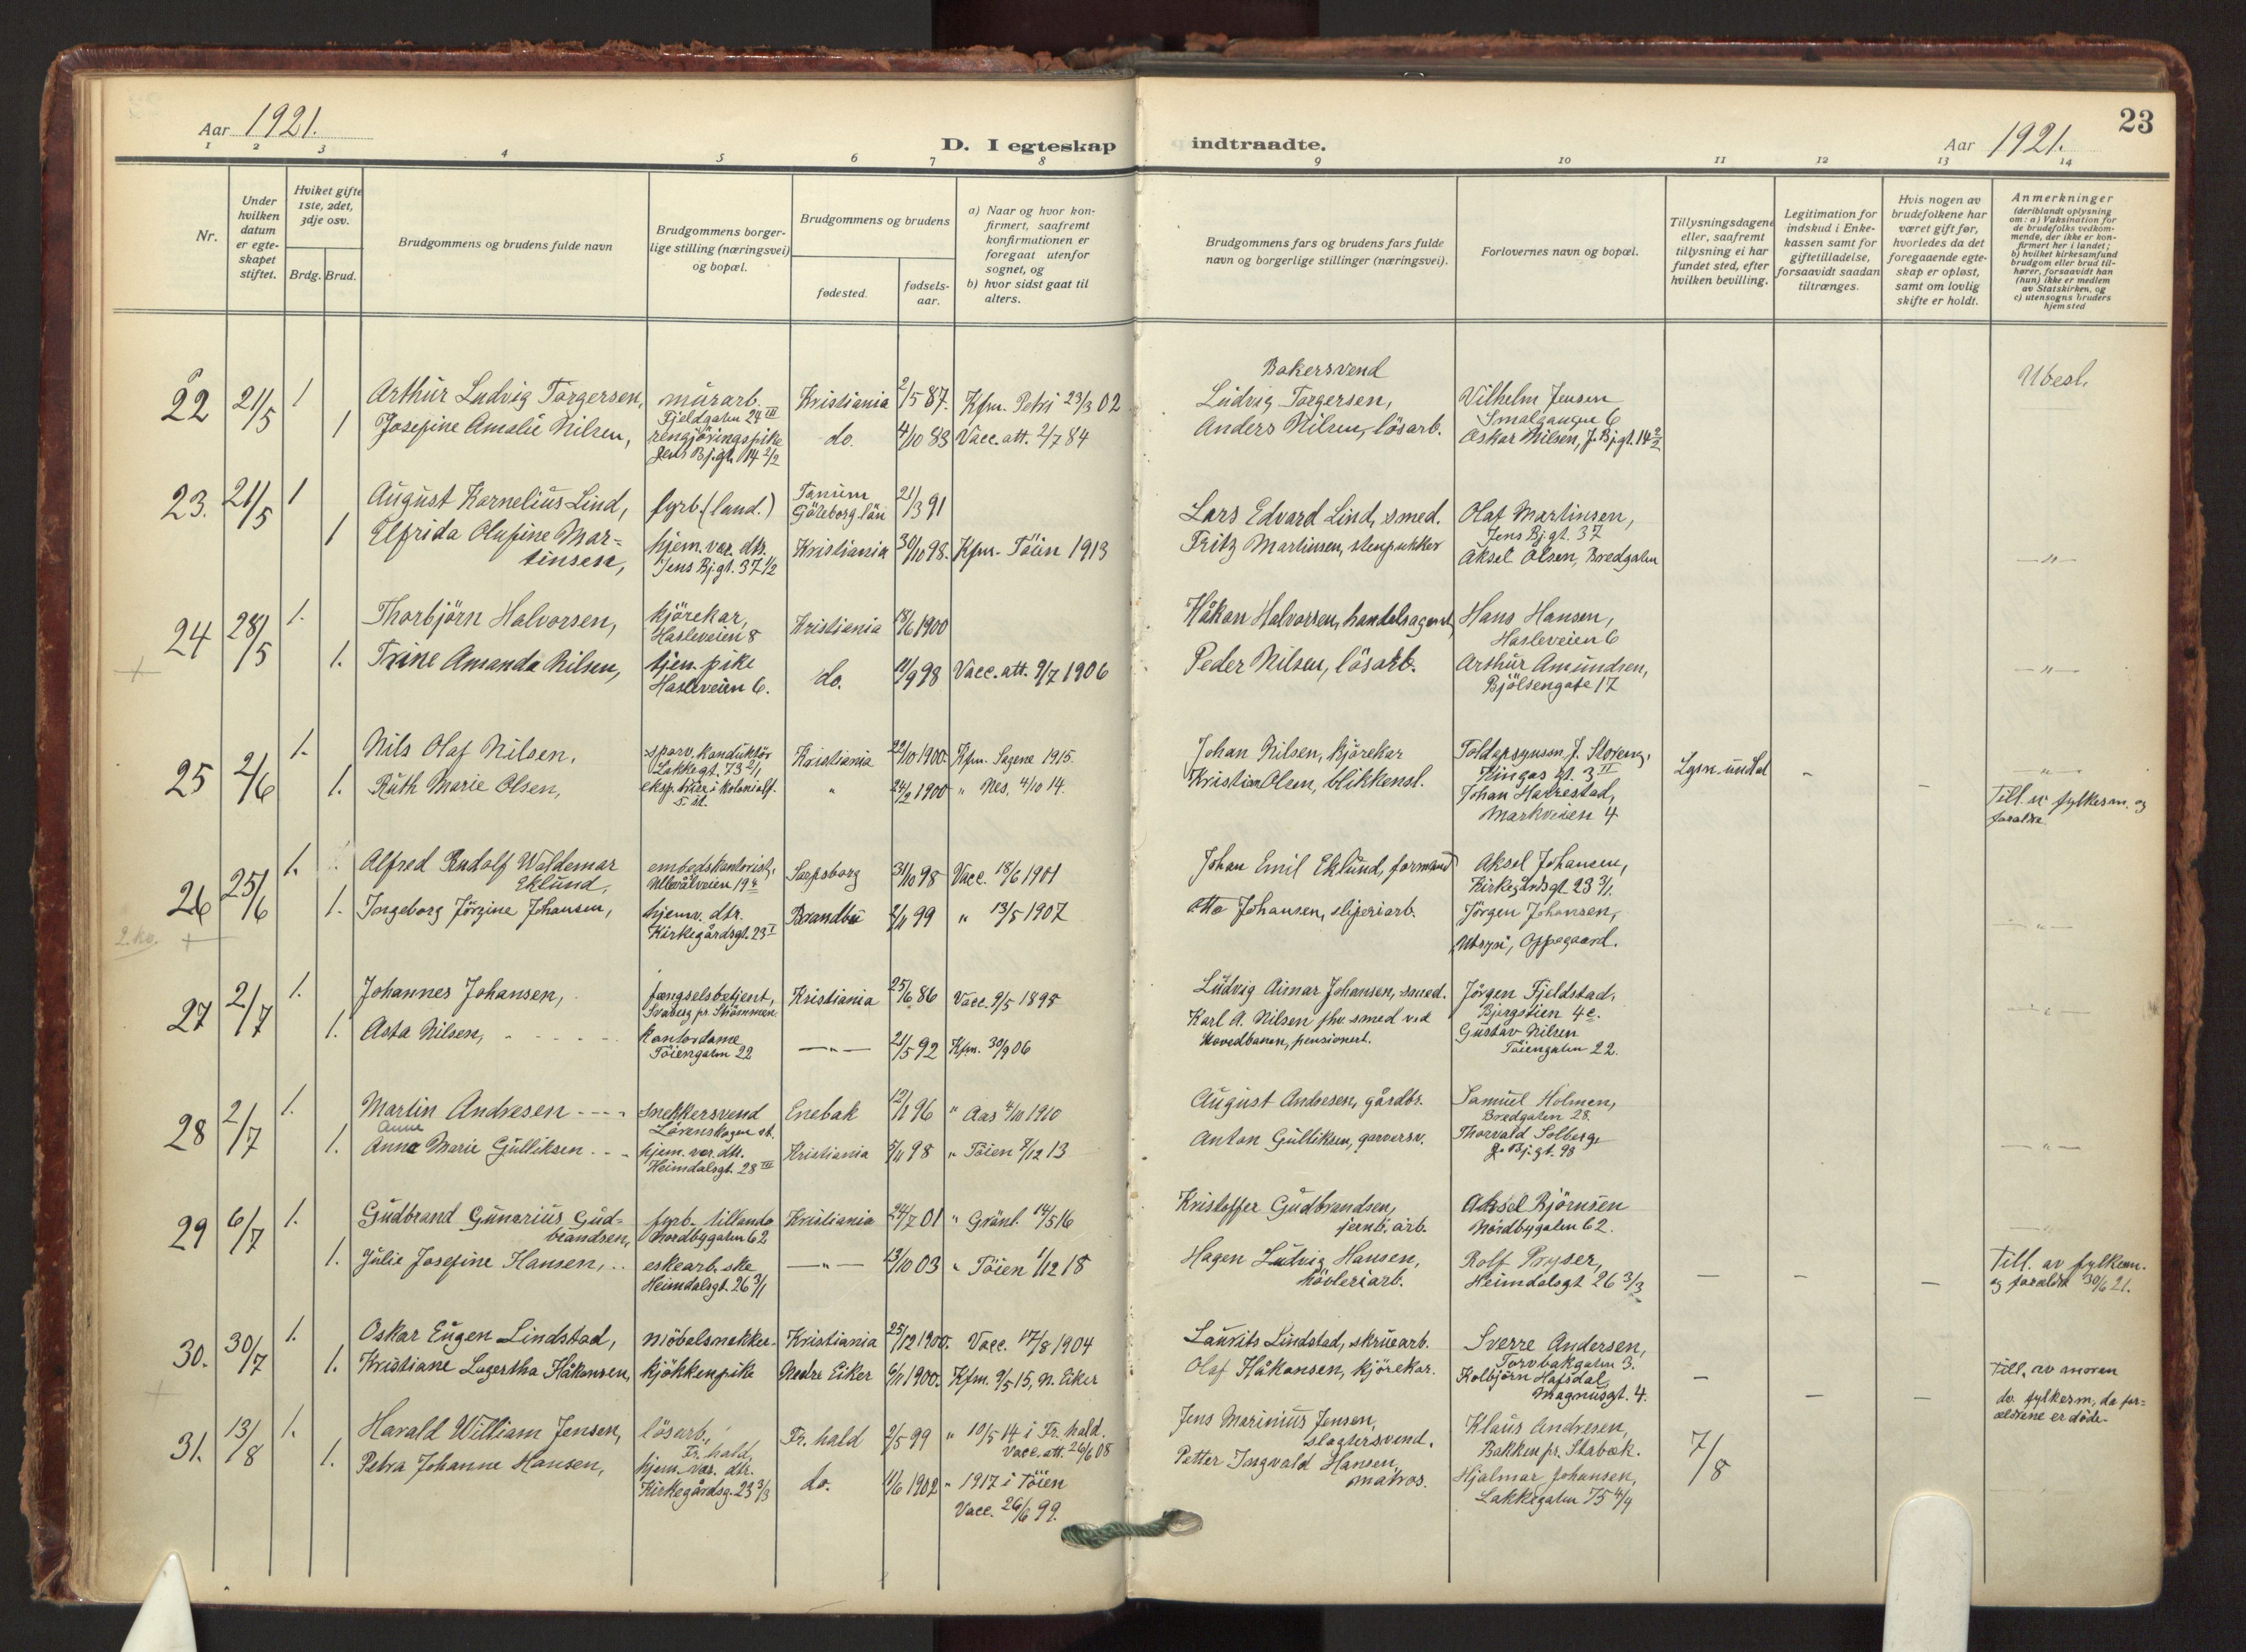 Aar 1921.
D. I egteskap indtraadte.
Aar 1921.
23
1 2 3 4 5 6 7 8 9 10 11 12 13 14
Nr.
Under hvilken datum er egte-skapet stiftet.
Hviket gifte 1ste, 2det, 3dje osv.
Brdg. Brud.
Brudgommens og brudens fulde navn
Brudgommens borger-lige stilling (næringsvei) og bopæl.
Brudgommens og brudens
fødested.
fødsels-aar.
a) Naar og hvor kon-firmert, saafremt konfirmationen er foregaat utenfor sognet, og
b) hvor sidst gaat til alters.
Brudgommens fars og brudens fars fulde navn og borgerlige stillinger (næringsvei).
Forlovernes navn og bopæl.
Tillysningsdagene eller, saafremt tillysning ei har fundet sted, efter hvilken bevilling.
Legitimation for indskud i Enke-kassen samt for giftetilladelse, forsaavidt saadan tiltrænges.
Hvis nogen av brudefolkene har været gift før, hvorledes da det foregaaende egte-skap er opløst, samt om lovlig skifte er holdt.
Anmerkninger (deriblandt oplysning om: a) Vaksination for de brudefolks vedkom-mende, der ikke er kon-firmert her i landet; b) hvilket kirkesamfund brudgom eller brud til-hører, forsaavidt han (hun) ikke er medlem av Statskirken, og c) utensogns bruders hjemsted
Bakersvend
22 21/5 1 Arthur Ludvig Torgersen, murarb. Fjeldgaten 24 III Kristiania 2/5 87. Kfm. Petri 23/3 02 Ludvig Torgersen, Vilhelm Jensen Smalgangen 6 Ubesl.
1 Josefine Amalie Nilsen, rengjöringspike Jens Bj.gt. 14 2/2 do. 4/10 83 Vacc. att. 2/7 84 Anders Nilsen, lösarb. Oskar Nilsen, J. Bj.gt. 14 2/2
23. 21/5 1 August Kornelius Lind, fyrb. (land.) Tanum Göteborg län 21/3 91 Lars Edvard Lind, smed. Olaf Martinsen, Jens Bj.gt. 37
1 Elfrida Olufine Mar=tinsen, hjem.vær. dtr. Jens Bj.gt. 37 1/2 Kristiania 30/10 98. Kfm. Töien 1913 Fritz Martinsen, stenpukker Aksel Olsen, Bredgaten — " —
24 28/5 1. Thorbjörn Halvorsen, kjörekar, Hasleveien 8 Kristiania 18/6 1900 Håkon Halvorsen, handelsagent, Hans Hansen, Hasleveien 6
1. Trine Amanda Nilsen, tjen. pike Hasleveien 6. do. 11/9 98 Vacc. att. 9/7 1906 Peder Nilsen, lösarb. Arthur Amundsen, Bjölsengate 17 — " —
25 2/6 1. Nils Olaf Nilsen, sporv. konduktör Lakkegt. 73 2/1 Kristiania 22/10 1900 Kfm. Sagene 1915. Johan Nilsen, kjörekar Toldopsynsm. J. Storeng, Kingos gt. 3 II — " —
1. Ruth Marie Olsen, " 24/2 1900 " Nes, 4/10 14. Kristian Olsen, blikkensl. Johan Harrestad, Markveien 4 Till. av fylkesm. og foreldre
26 25/6 1. Alfred Rudolf Waldemar Eklund, embedskontorist, Ullevålveien 19 Sarpsborg 31/10 98 Vacc. 18/6 1901 Johan Emil Eklund, formand Aksel Johansen, Kirkegårdsgt. 23 3/1.
1. Ingeborg Jörgine Johansen, hjemv. dtr. Kirkegårdsgt. 23 I Brandbu 2/11 99 " 13/5 1907 Otto Johansen, sliperiarb. Jörgen Johansen, Utsyn, Oppegaard. — " —
2. ko.
27 2/7 1. Johannes Johansen, fængselsbetjent, Kristiania 25/6 86 Vacc. 9/5 1898 Ludvig Aimar Johansen, smed. Jörgen Fjeldstad, Bjergstien 4 c. — " —
1. Asta Nilsen, kontordame Töiengaten 22 — " — 21/5 92 Kfm. 30/9 06 Karl A. Nilsen fhv. smed ved Hovedbanen, pensionert. Gustav Nilsen Töiengaten 22.
28 2/7 1. Martin Andresen snekkersvend Lörenskogen st. Enebak 12/11 96 " Aas 4/10 1910 August Andresen, gårdbr. Samuel Holmen, Bredgaten 28.
Anne
1. Anna Marie Gulliksen hjem. vær. dtr. Heimdalsgt. 28 III Kristiania 5/11 98 " Töien 7/12 13 Anton Gulliksen, garversv. Thorvald Solberg J. Bj.gt. 98 — " —
29 6/7 1. Gudbrand Gunarius Gud=brandsen, fyrb. tillands Nordbygaten 62 Kristiania 24/7 01 " Grönl. 14/5 16 Kristoffer Gudbrandsen, jernb. arb. Aksel Björnsen Nordbygaten 62.
1. Julie Josefine Hansen, eskearb.ske Heimdalsgt. 26 3/1 — " — 13/10 03 " Töien 1/12 18 Hagen Ludvig Hansen, hövleriarb. Rolf Pryser, Heimdalsgt 26 3/3 — — — Till. av fylkesm. og foreldre 30/6 21.
30. 30/7 1. Oskar Eugen Lindstad, möbelsnekker Kristiania 25/12 1900. Vacc. 17/8 1904 Laurits Lindstad, skruearb. Sverre Andersen, Torvbakgaten 3.
1. Kristiane Lagertha Håkonsen, kjökkenpike Nedre Eiker 6/11 1900. Kfm. 9/5 15, N. Eiker Olaf Håkonsen, kjörekar. Kolbjörn Hafsdal, Magnusgt. 4. — — — Till. av moren do. fylkesm, da for=ældrene er döde
31. 13/8 1. Harald William Jensen, lösarb., Fr. hald, Fr. hald 2/5 99 " 10/5 14 i Fr. hald. Vacc. att. 26/6 08 Jens Marinius Jensen, slagtersvend. Klaus Andresen, Bakken pr. Stabæk. 7/8
1. Petra Johanne Hansen, hjem. vær. dtr. Kirkegårdsg. 23 3/3 do. 11/6 1902 " 1917 i Töien Vacc. 26/6 99. Petter Ingvald Hansen, matros. Hjalmar Johansen, Lakkegaten 75 4/4